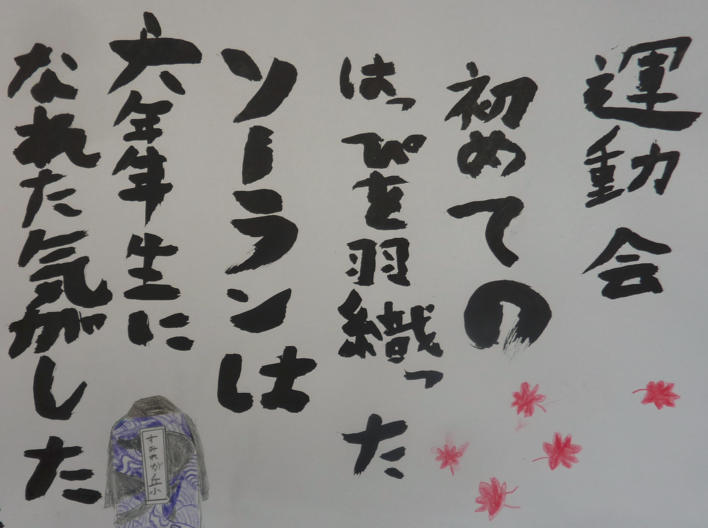 運動会
初めての
はっぴを羽織った
ソーランは
六年年生に
なれた気がした
すみれが丘小